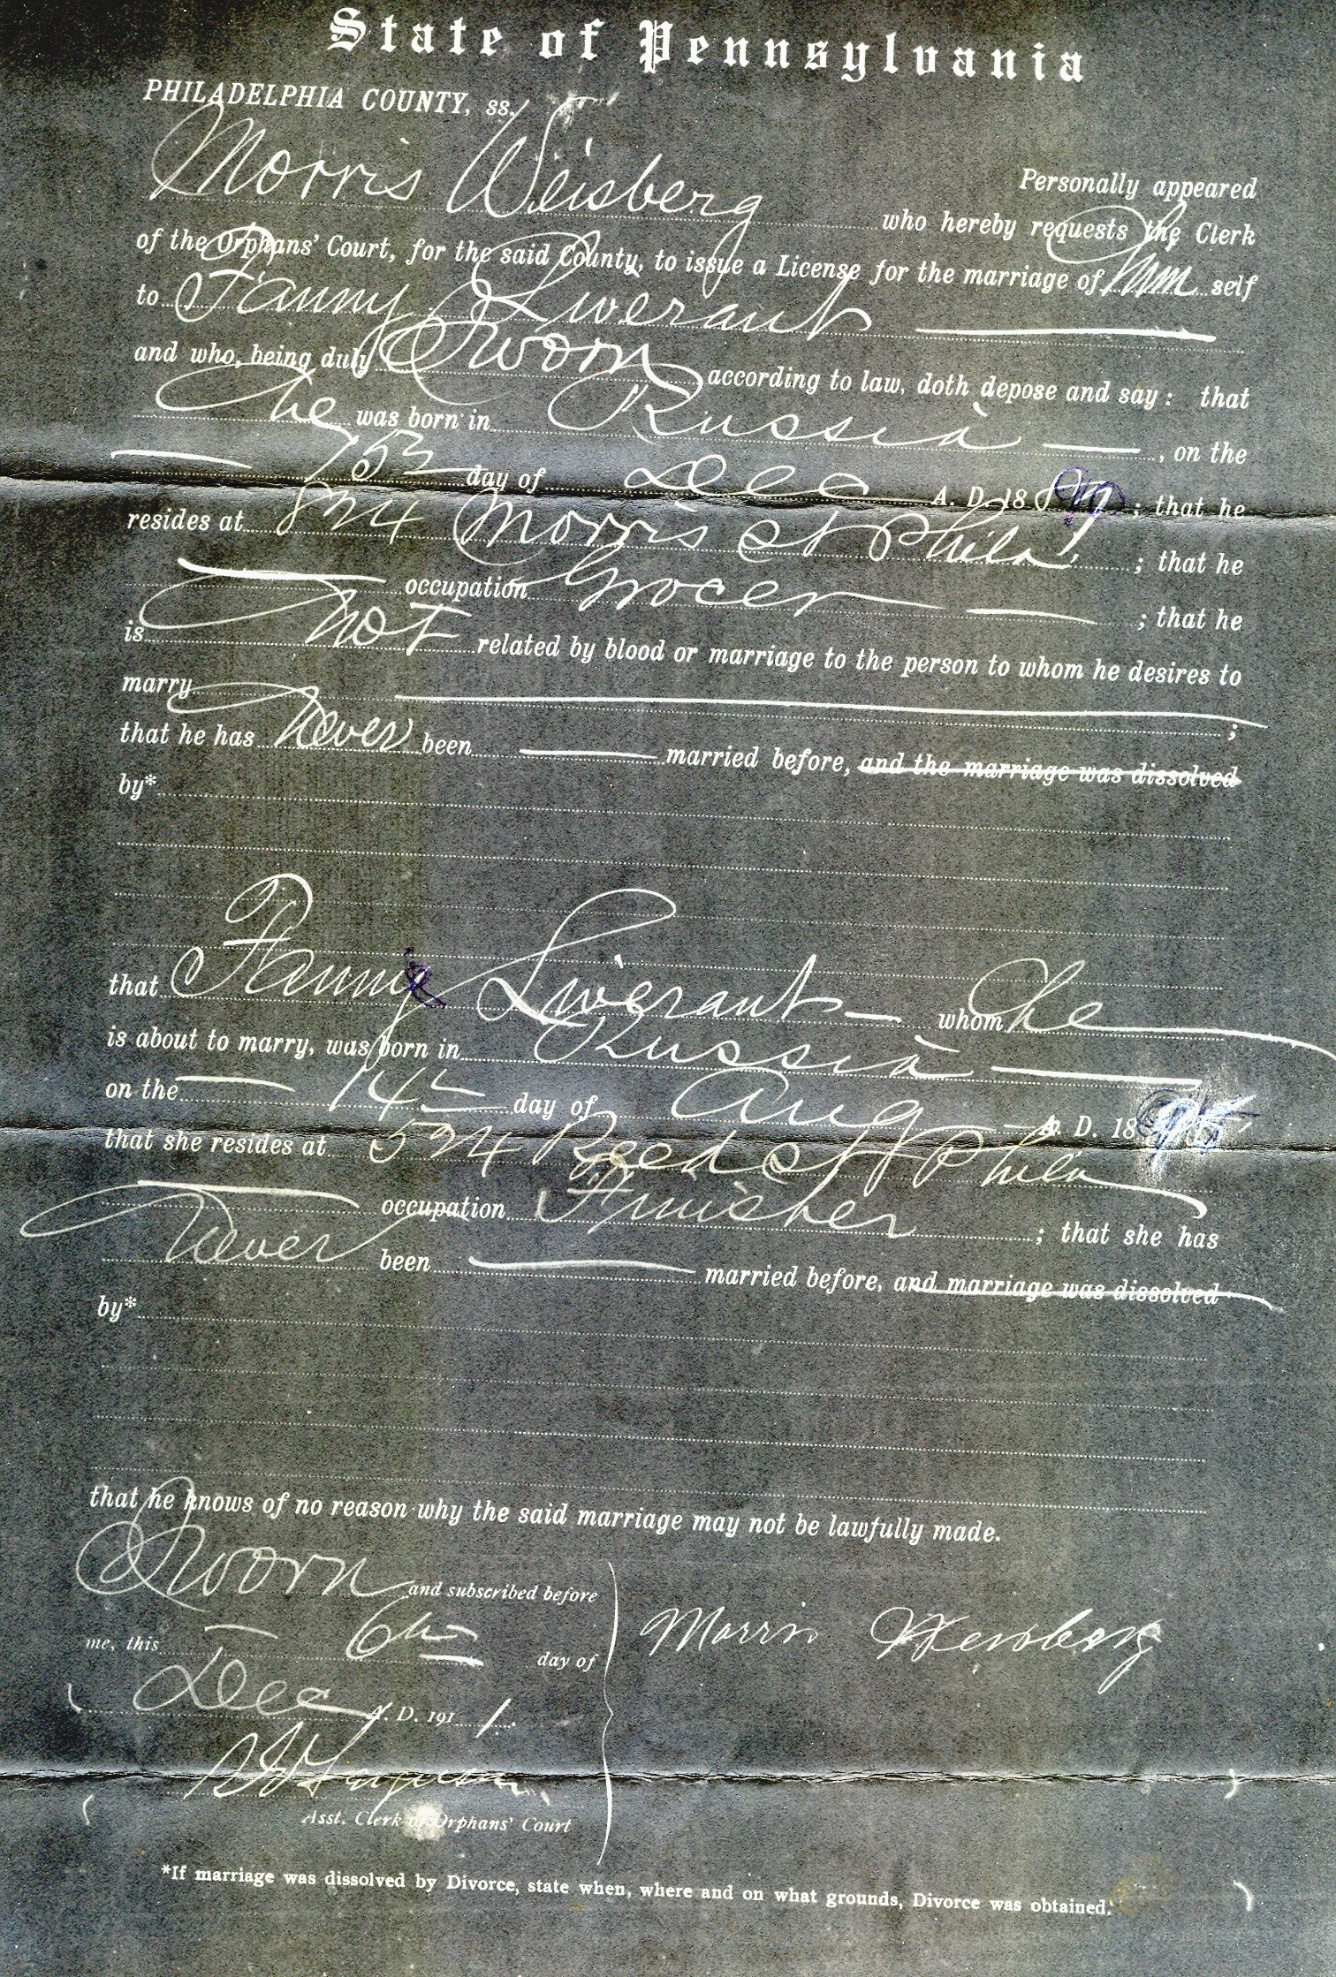 State of Pennsylvania
PHILADELPHIA COUNTY, ss.
Morris Weisberg Personally appeared
who hereby requests the Clerk
of the Orphans' Court, for the said County, to issue a License for the marriage of him self
to Fanny Liverant
and who, being duly Sworn according to law, doth depose and say: that
he was born in Russia, on the
day of Dec A. D. 18 ; that he
resides at 824 Morris St Phila ; that he
occupation Grocer ; that he
is not related by blood or marriage to the person to whom he desires to
marry ;
that he has Never been married before, and the marriage was dissolved
by*
that Fanny Liverant whom he
is about to marry, was born in Russia
on the 14th day of Aug A. D. 18
that she resides at 524 Reed St Phila
occupation Finisher ; that she has
Never been married before, and marriage was dissolved
by*
that he knows of no reason why the said marriage may not be lawfully made.
Sworn and subscribed before
me, this 6th day of
Morris Weisberg
Dec A. D. 191 1.
Asst. Clerk of Orphans' Court
*If marriage was dissolved by Divorce, state when, where and on what grounds, Divorce was obtained.